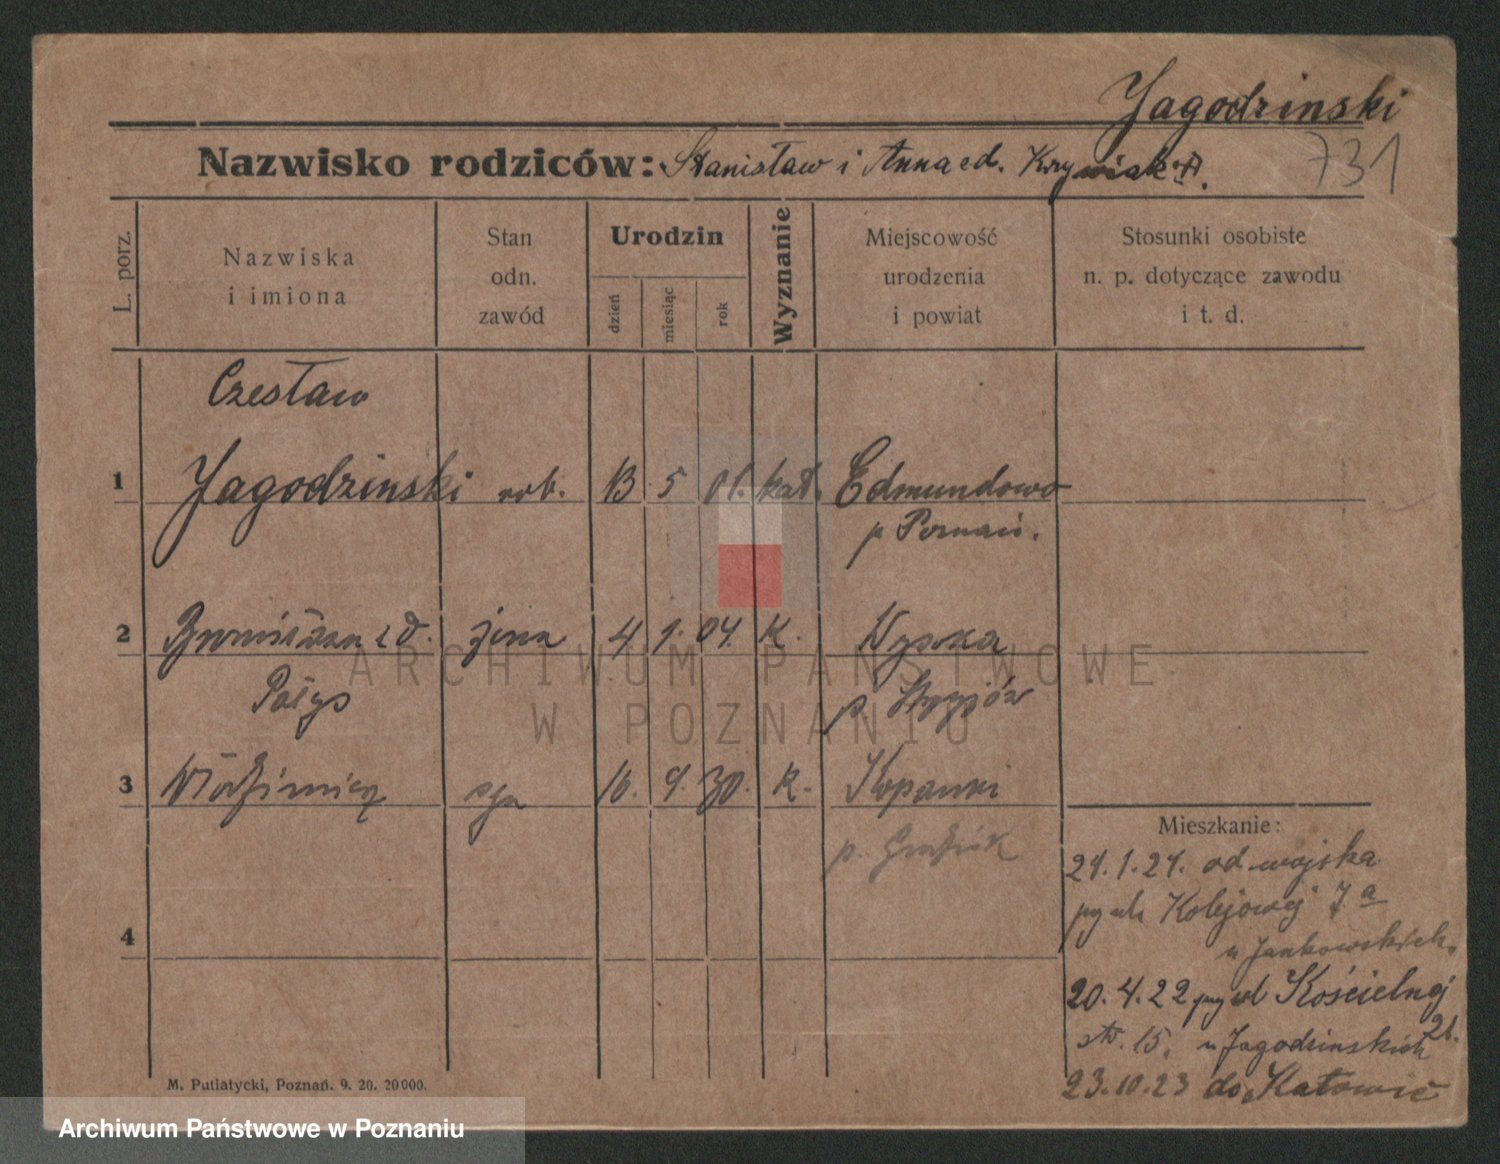 Jagodzinski
Nazwisko rodziców: Stanisław i Anna ed. 731
L. porz.
Nazwiska
i imiona
Stan
odn.
zawód
Urodzin
dzień
miesiąc
rok
Wyznanie
Miejscowość
urodzenia
i powiat
Stosunki osobiste
n. p. dotyczące zawodu
i t. d.
Czesław
1 Jagodzinski rob. 13 5 01. kat. Edmundowo
p Poznań.
2 żona 4 1. 04. K. Wysoka
p.
3 Włodzimierz syn 16. 9. 30. K. Kopanki
p.
4
Mieszkanie:
24.1.21. od wojska
Kolejowej 7a
u Jankowskich
20.4.22 Kościelnej
15. u Jagodzinskich
23.10.23 do Katowic
M. Putiatycki, Poznań. 9. 20. 20000.
ARCHIWUM PAŃSTWOWE
W POZNANIU
Archiwum Państwowe w Poznaniu